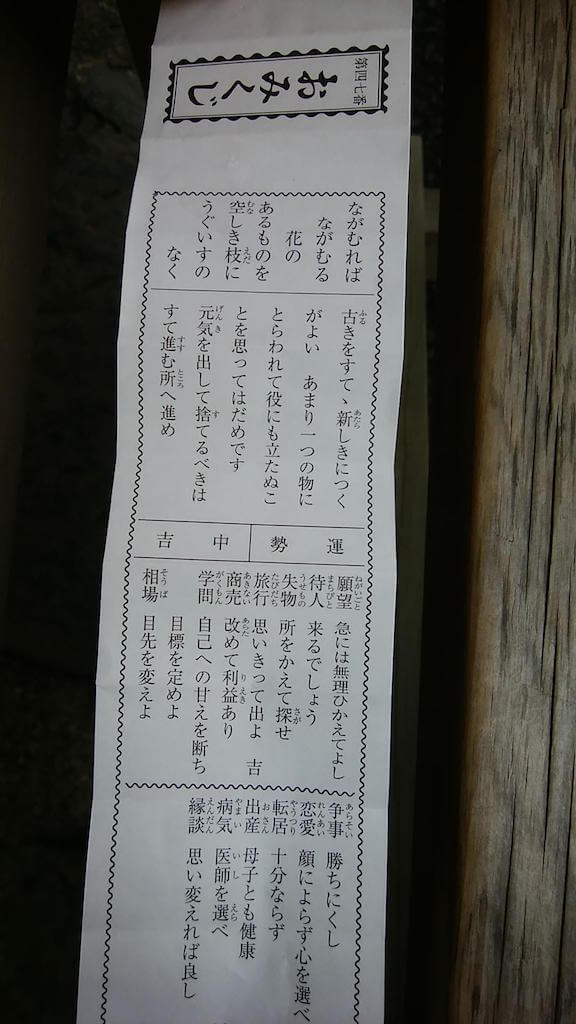 第四七番
おみくじ
ながむれば
ながむる
花の
あるものを
空しき枝に
うぐいすの
なく
古きをすてゝ新しきにつく
がよい あまり一つの物に
とらわれて役にも立たぬこ
とを思ってはだめです
元気を出して捨てるべきは
すて進む所へ進め
運勢
中吉
願望 急には無理ひかえてよし
待人 来るでしょう
失物 所をかえて探せ
旅行 思いきって出よ 吉
商売 改めて利益あり
学問 自己への甘えを断ち
目標を定めよ
相場 目先を変えよ
争事 勝ちにくし
恋愛 顔によらず心を選べ
転居 十分ならず
出産 母子とも健康
病気 医師を選べ
縁談 思い変えれば良し